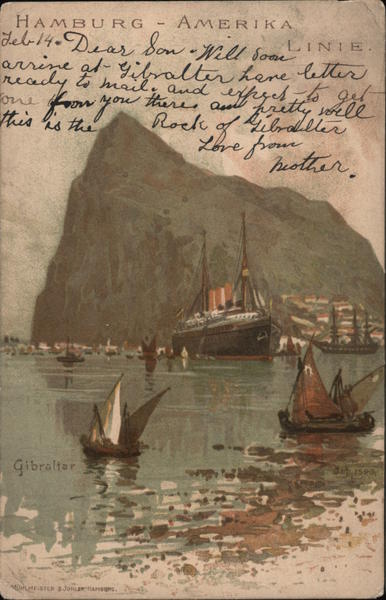 HAMBURG - AMERIKA
LINIE.
Feb 14. Dear Son. Will soon
arrive at Gibralter have letter
ready to mail. and expect to get
one from you there am pretty well
this is the Rock of Gibralter
Love from
Mother.
Gibraltar
MÜHLMEISTER & JOHLER, HAMBURG.